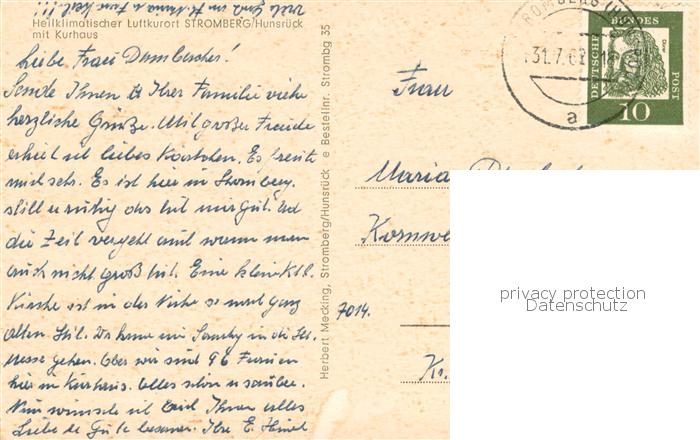 Heilklimatischer Luftkurort STROMBERG/Hunsrück
mit Kurhaus
Liebe Frau Dambacher!
Sende Ihnen & Ihrer Familie viele
herzliche Grüße. Mit großer Freude
erhielt ich liebes Kärtchen. Es freute
mich sehr. Es ist hier in Stromberg
still u ruhig das tut mir gut. Und
die Zeit vergeht auch wenn man
auch nicht groß tut. Eine kleine
Kirche ist in der Nähe so ganz
alten Stil. Da kann in die
Messe gehen. Aber wir sind 96 Frauen
hier im Kurhaus. Alles schön u sauber.
Nun wünsche ich Ihnen alles
Liebe & Gute Ihre E.
Herbert Mecking, Stromberg/Hunsrück e Bestellnr. Strombg 35
STROMBERG (H
31.7.62
a
DEUTSCHE
BUNDES
POST
Dürer
10
Frau
Maria
Kornwe
7014.
Kr.
privacy protection
Datenschutz